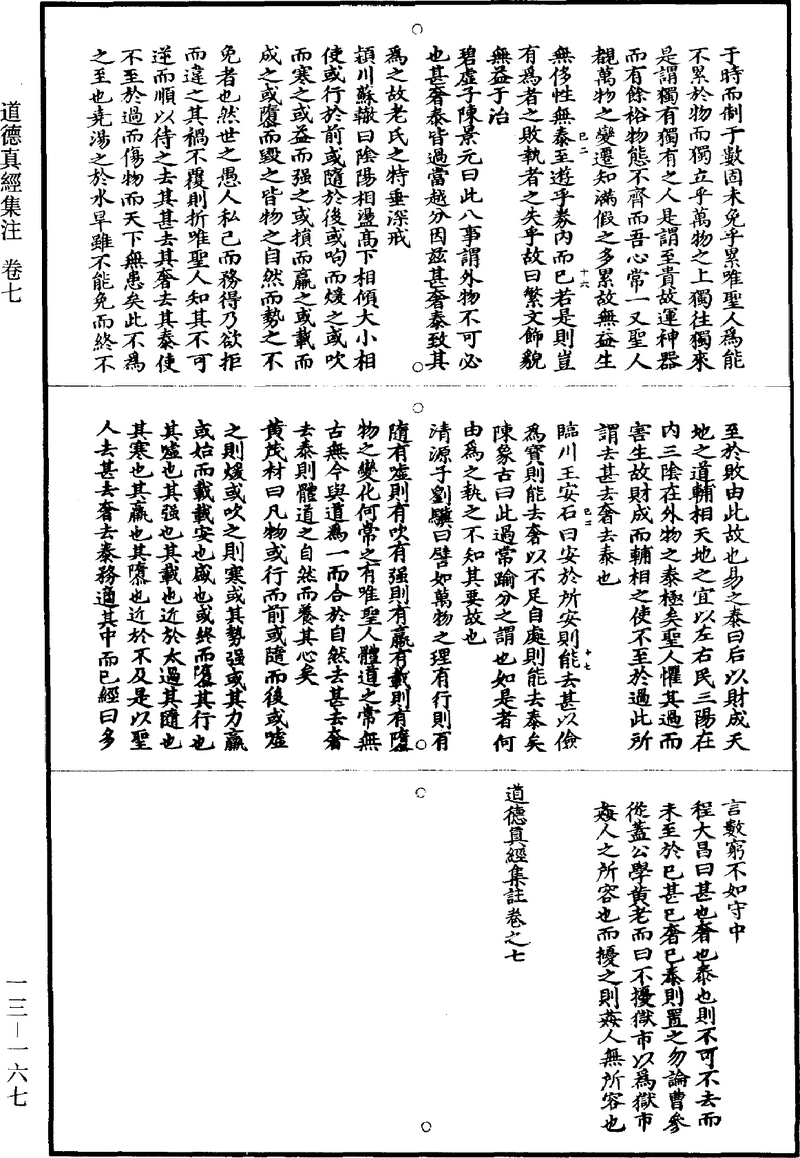 道德真經集注　卷七
于時而制于數固未免乎累唯聖人為能
不累於物而獨立乎萬物之上獨往獨來
是謂獨有獨有之人是謂至貴故運神器
而有餘裕物態不齊而吾心常一又聖人
覩萬物之變遷知滿假之多累故無益生
無侈性無泰至遊乎券內而已若是則豈
有為者之敗執者之失乎故曰繁文飾貌
無益于治
碧虛子陳景元曰此八事謂外物不可必
也甚奢泰皆過當越分因茲甚奢泰致其
為之故老氏之特垂深戒
潁川蘇轍曰陰陽相盪高下相傾大小相
使或行於前或隨於後或呴而煖之或吹
而寒之或益而强之或損而羸之或載而
成之或隳而毀之皆物之自然而勢之不
免者也然世之愚人私己而務得乃欲拒
而違之其禍不覆則折唯聖人知其不可
逆而順以待之去其甚去其奢去其泰使
不至於過而傷物而天下無患矣此不為
之至也堯湯之於水旱雖不能免而終不
已二
十六
至於敗由此故也易之泰曰后以財成天
地之道輔相天地之宜以左右民三陽在
內三陰在外物之泰極矣聖人懼其過而
害生故財成而輔相之使不至於過此所
謂去甚去奢去泰也
臨川王安石曰安於所安則能去甚以儉
為寶則能去奢以不足自處則能去泰矣
陳象古曰此過常踰分之謂也如是者何
由為之執之不知其要故也
清源子劉驥曰譬如萬物之理有行則有
隨有噓則有吹有强則有羸有載則有隳
物之變化何常之有唯聖人體道之常無
古無今與道為一而合於自然去甚去奢
去泰則體道之自然而養其心矣
黃茂材曰凡物或行而前或隨而後或噓
之則煖或吹之則寒或其勢强或其力羸
或始而載載安也盛也或終而隳其行也
其噓也其强也其載也近於太過其隨也
其寒也其羸也其隳也近於不及是以聖
人去甚去奢去泰務適其中而已經曰多
已二
十七
言數窮不如守中
程大昌曰甚也奢也泰也則不可不去而
未至於已甚已奢已泰則置之勿論曹參
從蓋公學黃老而曰不擾獄市以為獄市
姦人之所容也而擾之則姦人無所容也
道德真經集註卷之七
一三－一六七